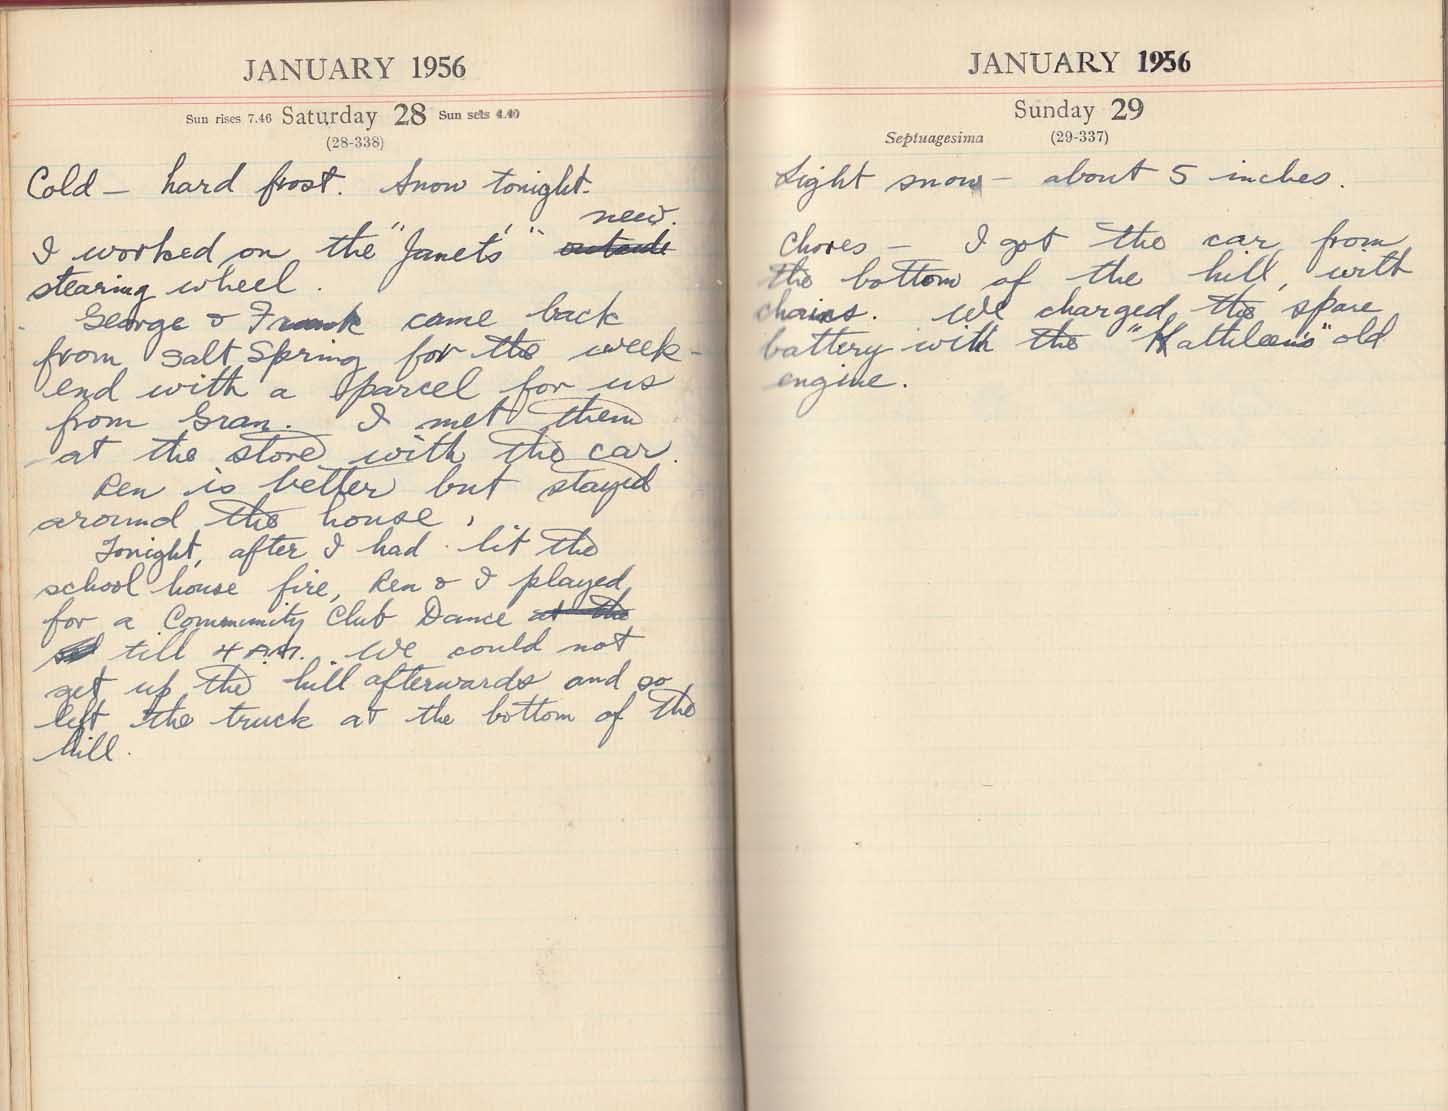 JANUARY 1956
Sun rises 7.46 Saturday 28 Sun sets 4.40
(28-338)
Cold – hard frost. Snow tonight.
new.
I worked on the "Janet's" outside
stearing wheel.
George & Frank came back
from Salt Spring for the week-
end with a parcel for us
from Gran. I met them
at the store with the car.
Ren is better but stayed
around the house.
Tonight, after I had lit the
school house fire, Ren & I played
for a Community Club Dance at the
till 4 A.M. We could not
get up the hill afterwards and so
left the truck at the bottom of the
hill.
JANUARY 1956
Sunday 29
Septuagesima (29-337)
Light snow – about 5 inches.
Chores – I got the car from
the bottom of the hill, with
chains. We charged the spare
battery with the "Kathleen's" old
engine.